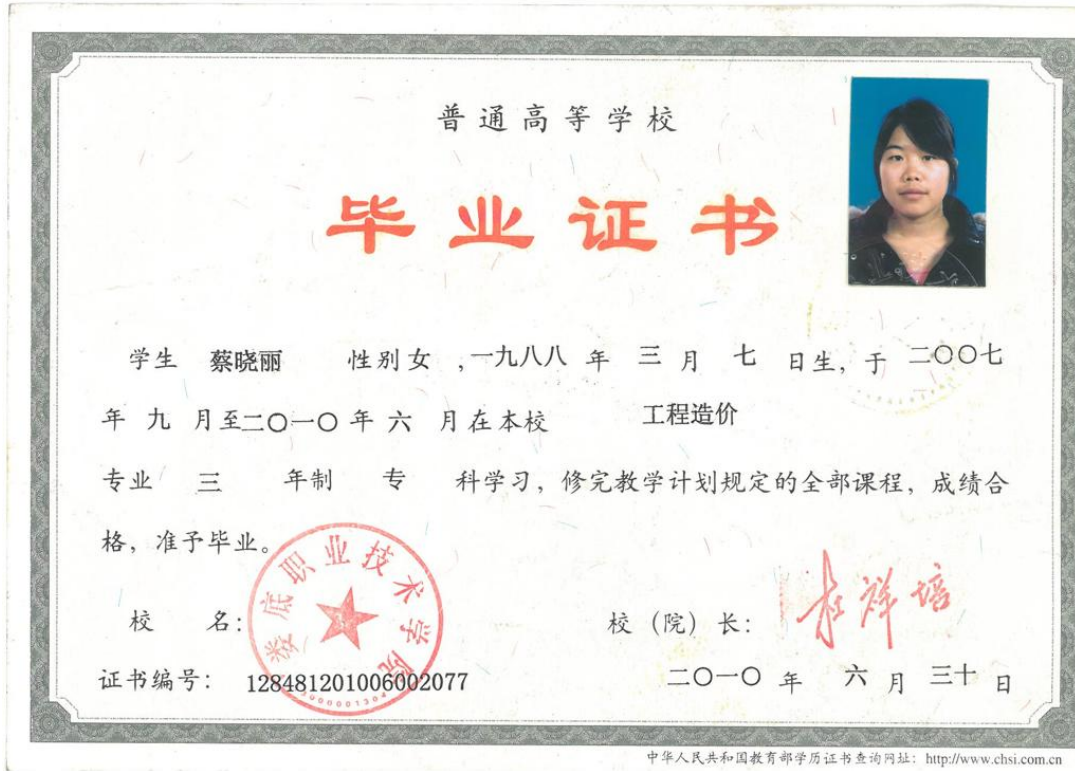 普通高等学校
毕业证书
学生 蔡晓丽 性别 女 ,一九八八 年 三 月 七 日生, 于 二〇〇七
年 九 月至二〇一〇年 六 月在本校 工程造价
专业 三 年制 专 科学习, 修完教学计划规定的全部课程, 成绩合
格, 准予毕业。
娄底职业技术学院
校 名: 校 (院) 长: 杜祥培
证书编号: 128481201006002077 二〇一〇 年 六 月 三十 日
中华人民共和国教育部学历证书查询网址: http://www.chsi.com.cn